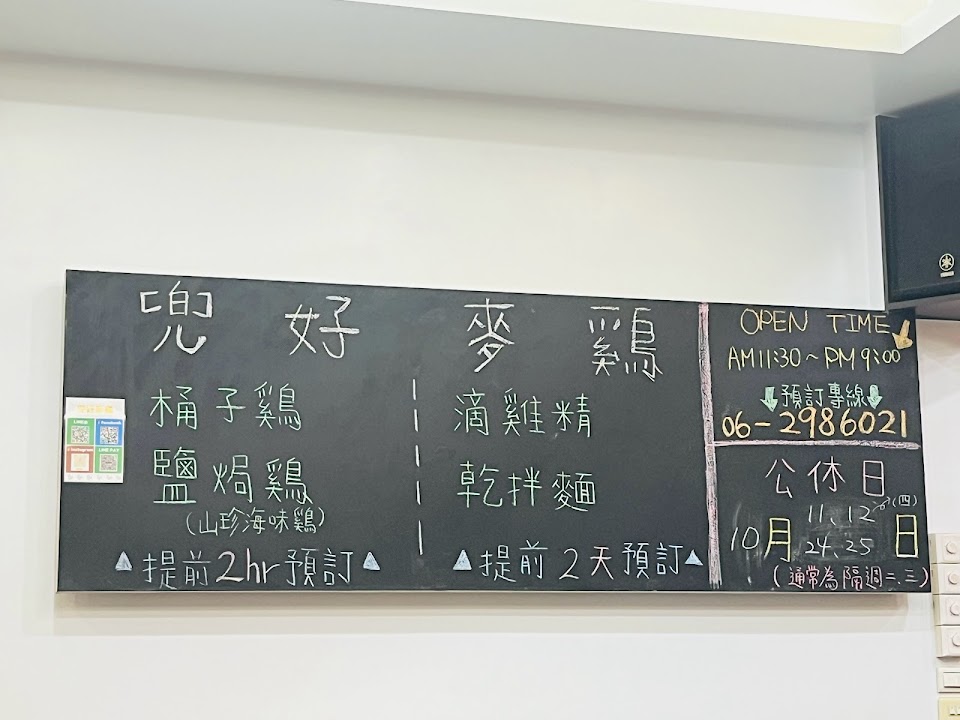 兜 好 麥 鷄
桶子鷄
鹽焗鷄
(山珍海味鷄)
▲提前2hr預訂▲
滴雞精
乾拌麵
▲提前2天預訂▲
OPEN TIME
AM11:30~PM9:00
預訂專線
06-2986021
公休日
10月 11、12(四) 24、25 日
(通常為隔週二、三)
LINE PAY